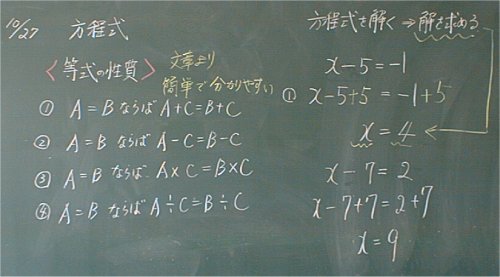 10/27 方程式
〈等式の性質〉 文章より
簡単で分かりやすい
① A=BならばA+C=B+C
② A=BならばA-C=B-C
③ A=BならばA×C=B×C
④ A=BならばA÷C=B÷C
方程式を解く⇒解を求める
x-5=-1
① x-5+5=-1+5
x=4
x-7=2
x-7+7=2+7
x=9